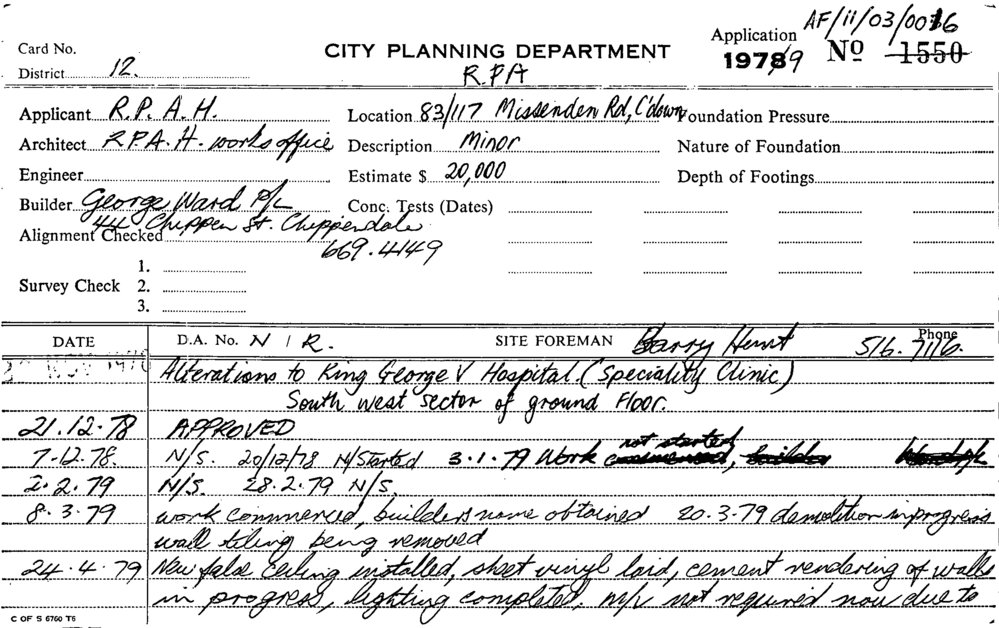 AF/ii/03/0016
Card No.
CITY PLANNING DEPARTMENT
Application
1978/9 Nº 1550
District 12.
R.P.A
Applicant R.P.A.H.
Location 83/117 Missenden Rd, C'down
Foundation Pressure
Architect R.P.A.H. works office
Description Minor
Nature of Foundation
Engineer
Estimate $ 20,000
Depth of Footings
Builder George Ward P/L
Conc. Tests (Dates)
44 Chippen St. Chippendale
Alignment Checked
669.4149
1.
Survey Check 2.
3.
DATE D.A. No. N / R. SITE FOREMAN Barry Hunt Phone 516.7116.
NOV 1978 Alterations to King George V Hospital (Speciality Clinic)
South west sector of ground Floor.
21.12.78 APPROVED
7-12.78. N/S. 20/12/78 N/Started 3.1.79 Work not started commenced, builder
2.2.79 N/S. 28.2.79 N/S.
8.3.79 work commenced, builders name obtained 20.3.79 demolition in progress
wall tiling being removed
24.4.79 New false ceiling installed, sheet vinyl laid, cement rendering of walls
in progress, lighting completed, m/v not required now due to
C OF S 6760 T6